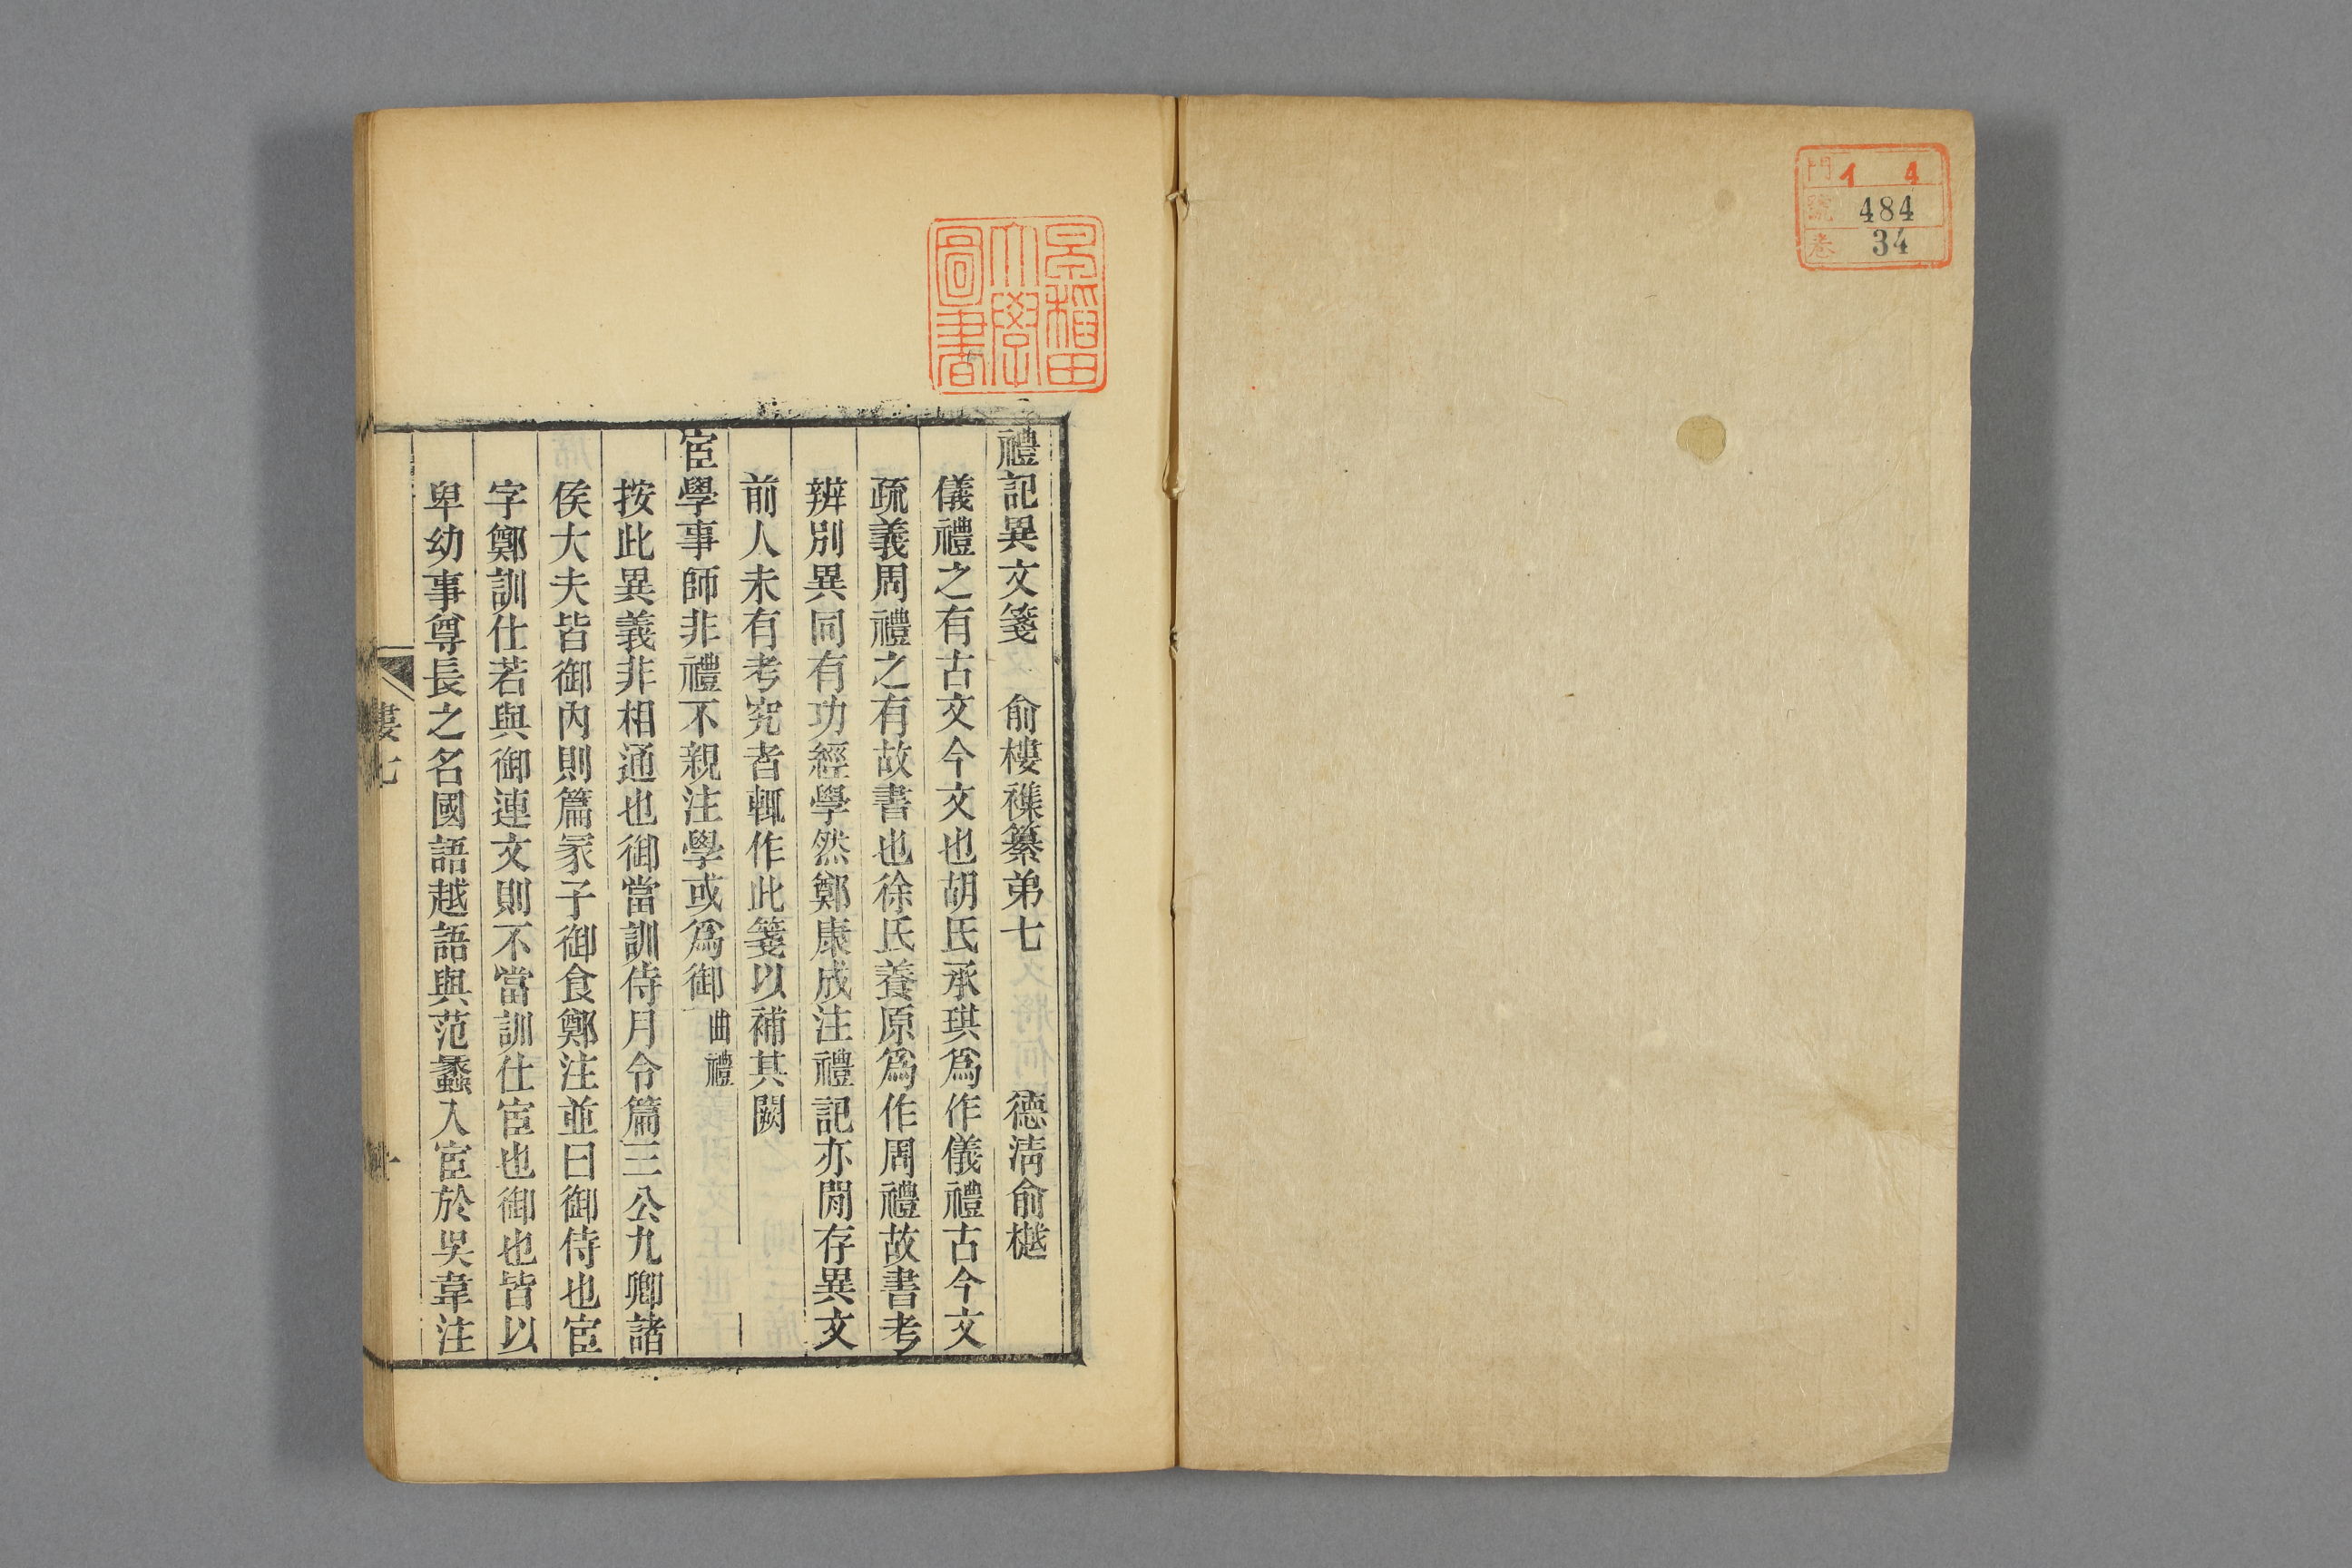 門 1 4
號 484
卷 34
早稻田
大學
圖書
禮記異文箋 俞樓襍纂弟七 德淸俞樾
儀禮之有古文今文也胡氏承珙爲作儀禮古今文
疏義周禮之有故書也徐氏養原爲作周禮故書考
辨別異同有功經學然鄭康成注禮記亦閒存異文
前人未有考究者輒作此箋以補其闕
宦學事師非禮不親注學或爲御 曲禮
按此異義非相通也御當訓侍月令篇三公九卿諸
侯大夫皆御內則篇冢子御食鄭注並曰御侍也宦
字鄭訓仕若與御連文則不當訓仕宦也御也皆以
卑幼事尊長之名國語越語與范蠡入宦於吳韋注
樓七